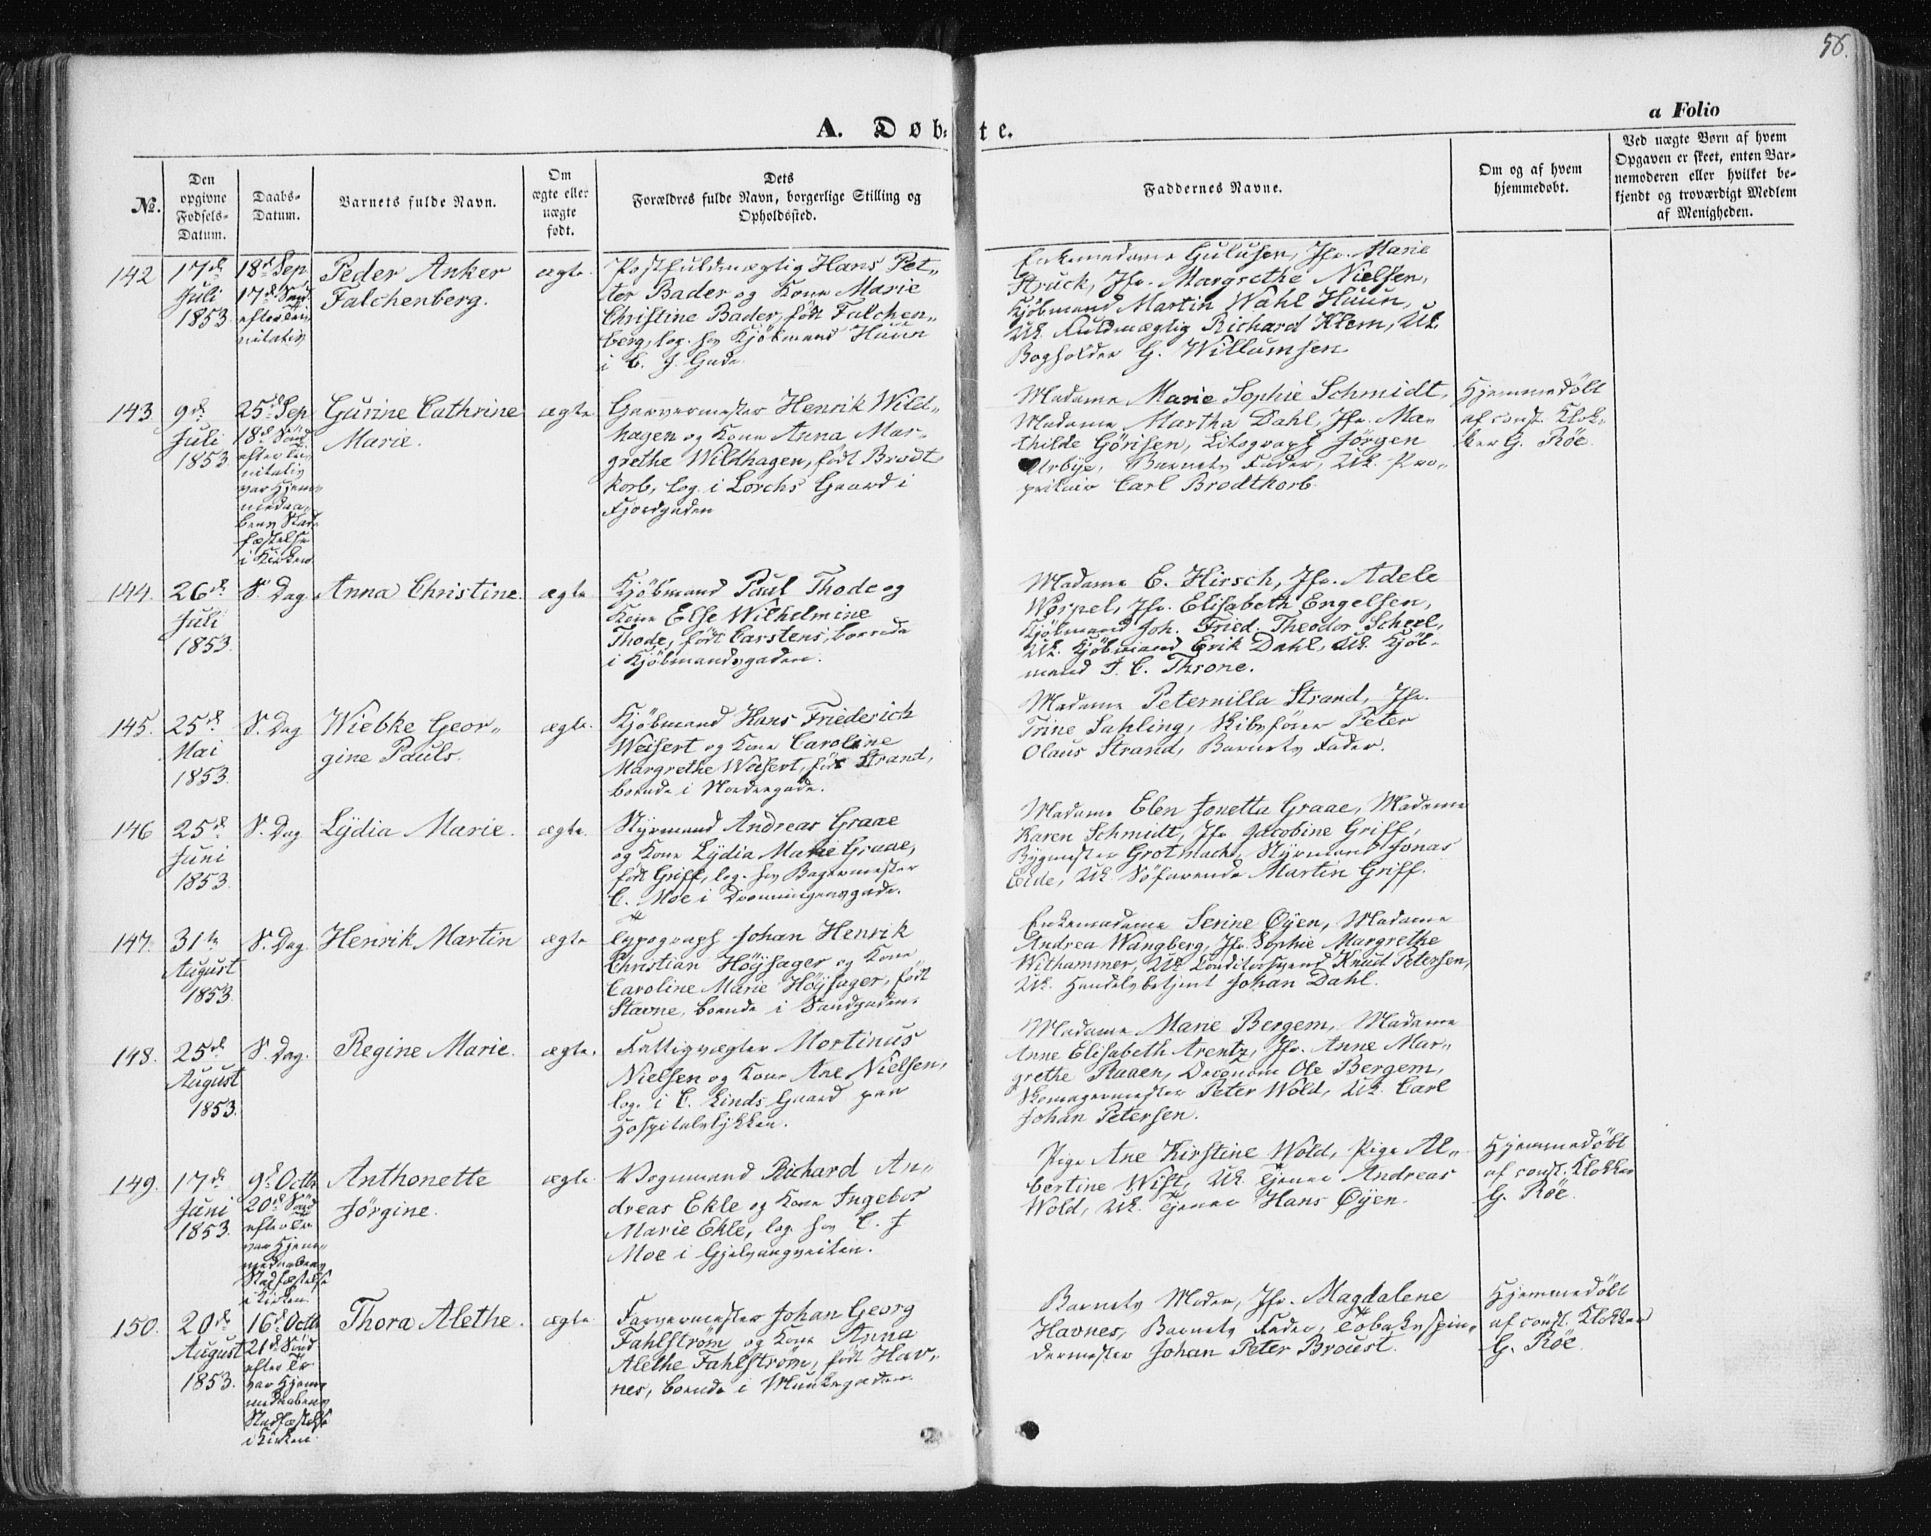 56.
a Folio
A. Døbte.
№.
Den opgivne Fødsels-Datum.
Daabs-Datum.
Barnets fulde Navn.
Om ægte eller uægte født.
Dets Forældres fulde Navn, borgerlige Stilling og Opholdssted.
Faddernes Navne.
Om og af hvem hjemmedøbt.
Ved uægte Børn af hvem Opgaven er skeet, enten Barnemoderen eller hvilket bekjendt og troværdigt Medlem af Menigheden.
142
17de
Juli
1853
18de Sep
17de Sønd
efter Trinitatis
Peder Anker
Falchenberg.
ægte.
Postfuldmægtig Hans Pet-
ter Bader og Kone Marie
Christine Bader, født Falchen-
berg, log. hos Kjöbmand Huun
i C. J. Gade
Enkemadame Gulusen, Jfr. Marie
Struck, Jfr. Margrethe Nielsen,
Kjöbmand Martin Wahl Huun,
Uk. Fuldmægtig Richard Klem, Uk.
Bogholder G. Willumsen
143
9de
Juli
1853
25de Sep
18de Sönd
efter Trinitatis
var Hjem-
medaa-
bens Stad-
fæstelse
i Kirken
Gurine Cathrine
Marie.
ægte
Garvermester Henrik Wild-
hagen og Kone Anna Mar-
grethe Wildhagen, født Brodt
korb, log. i Lorchs Gaard i
Fjordgaden
Madame Marie Sophie Schmidt,
Madame Martha Dahl, Jfr. Ma-
thilde Görisen, Litograph Jörgen
Urbye, Barnets Fader, Uk. Pro-
prietair Carl Brodtkorb.
Hjemmedøbt
af const. Klok-
ker G. Röe.
144.
26de
Juli
1853.
S. Dag
Anna Christine.
ægte
Kjöbmand Paul Thode og
Kone Else Wilhelmine
Thode, født Carstens, boende
i Kjöbmandsgaden.
Madame C. Hirsch, Jfr. Adele
Worpel, Jfr. Elisabeth Engelsen,
Kjöbmand Joh. Fried. Theodor Scheel,
Uk. Kjöbmand Erik Dahl, Uk. Kjöb-
mand J. C. Throne.
145.
25de
Mai
1853.
S. Dag
Wiebke Geor-
gine Pauls.
ægte.
Kjöbmand Hans Friederich
Weisert og Kone Caroline
Margrethe Weisert, født Strand,
boende i Nordregade.
Madame Peternilla Strand, Jfr.
Trine Sahling, Skibsförer Peter
Olaus Strand, Barnets Fader.
146
25de
Juni
1853.
S. Dag
Lÿdia Marie.
ægte.
Styrmand Andreas Graae
og Kone Lÿdia Marie Graae,
født Griff, log. hos Bagermester
C. Moe i Dronningensgade.
Madame Elen Jonetta Graae, Madame
Karen Schmidt, Jfr Jacobine Griff,
Bygmester Grotmach, Styrmand Jonas
Eide, Uk. Söfarende Martin Griff.
147.
31te
August
1853.
S. Dag
Henrik Martin
ægte
Typograph Johan Henrik
Christian Höÿsager og Kone
Caroline Marie Höÿsager, født
Stavne, boende i Sandgaden.
Enkemadame Serine Øÿen, Madame
Andrea Wangberg, Jfr. Sophie Margrethe
Withammer, Uk. Conditorsvend Knud Petersen,
Uk. Handelsbetjent Johan Dahl.
148.
25de
August
1853.
S. Dag.
Regine Marie.
ægte.
Fattigvægter Mortinus
Nielsen og Kone Ane Nielsen,
log. i C. Linds Gaard paa
Hospitalslykken.
Madame Marie Bergem, Madame
Anne Elisabeth Arentz, Jfr. Anne Mar-
grethe Raaen, Oeconom Ole Bergem,
Skomagermester Peter Wold, Uk. Carl
Johan Petersen.
149.
17de
Juni
1853.
9de Octb
20de Sönd
efter Tr
var Hjem-
medaabens
Stadfæstelse
i Kirken.
Anthonette
Jørgine.
ægte.
Vognmand Richard An-
dreas Ekle og Kone Ingebor
Marie Ekle, log. hos C. J
Moe i Gjelvangveiten.
Pige Ane Kirstine Wold, Pige Al-
bertine Wist, Uk. Tjener Andreas
Wold, Uk. Tjener Hans Øÿen.
Hjemmedøbt
af const. Klokker
G. Röe.
150.
20de
August
1853.
16de Octb
21de Sönd
efter Tr
var Hjem-
medaabens
Stadfæstelse
i Kirken.
Thora Alethe.
ægte
Farvermester Johan Georg
Fahlström og Kone Anna
Alethe Fahlström, født Hav-
nes, boende i Munkegaden.
Barnets Moder, Jfr. Magdalene
Havnes, Barnets Fader, Tobakspin-
dermester Johan Peter Broust.
Hjemmedøbt
af const. Klokker
G. Röe.